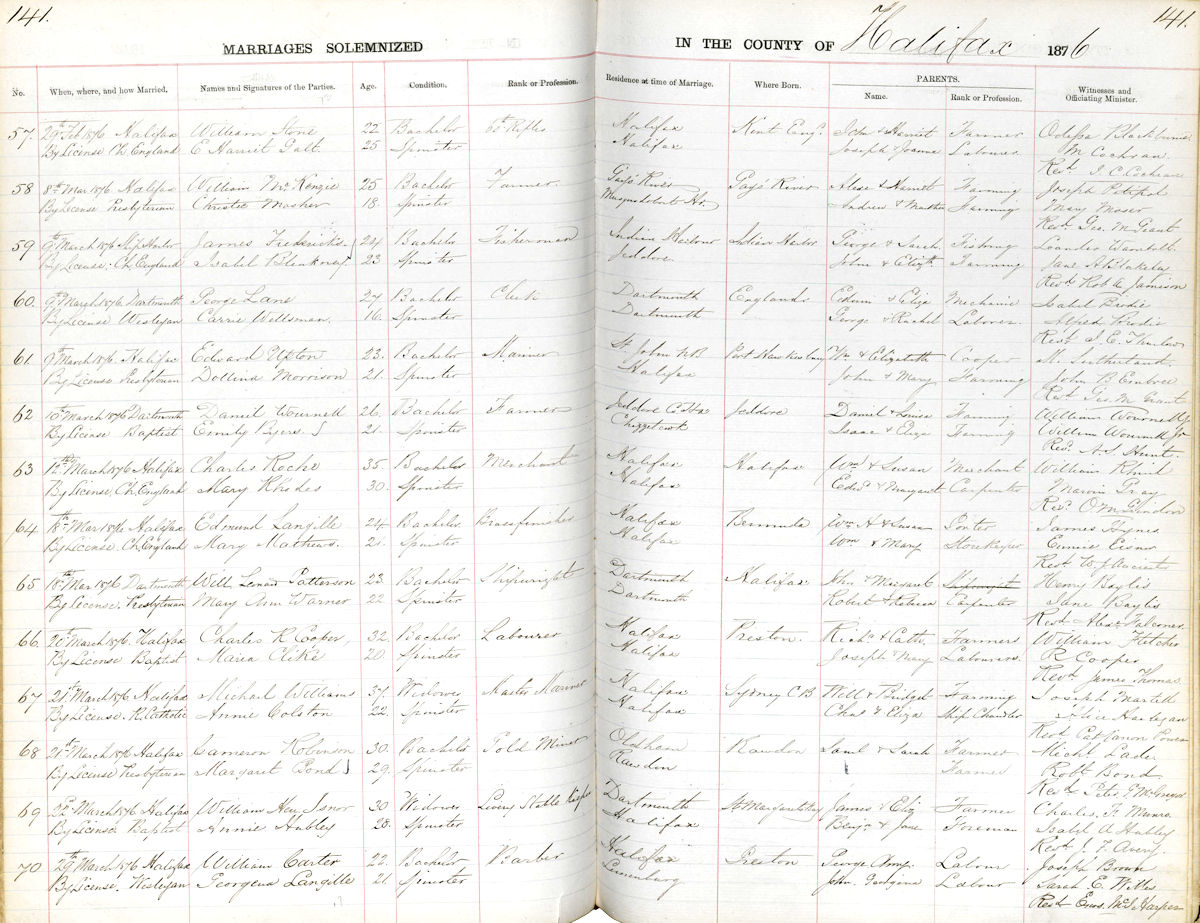 141.
141.
MARRIAGES SOLEMNIZED IN THE COUNTY OF Halifax 1876
PARENTS.
No. When, where, and how Married. Names and Signatures of the Parties. Age. Condition. Rank or Profession. Residence at time of Marriage. Where Born. Name. Rank or Profession. Witnesses and Officiating Minister.
57. 29th Feb 1876 Halifax William Stone 22 Bachelor 60th Rifles Halifax Kent Eng. John & Harriet Farmer Odessa Blackburne
By License Ch England E Harriet Galt 25 Spinster Halifax Joseph & Joanna Labourer M Cochran
Revd J. C. Cochran
58 8th Mar 1876 Halifax William McKenzie 25 Bachelor Farmer Gays River Gays River & Harriet Farming Joseph
By License Presbyterian Christie Mosher 18. Spinster Musquodoboit Hr. Andrew & Farming Mary Moser
Revd Geo. M Grant
59 9th March 1876 Ship Harbor James Fredericks 24 Bachelor Fisherman Indian Harbour Indian Harbor George & Sarah Fishing Leander
By License Ch England Isabel Blenkorn 23 Spinster Jeddore. John & Elizth Farming Jane A Blakeley
Revd Robt Jamison
60. 9th March 1876 Dartmouth George Lane 27 Bachelor Clerk Dartmouth England Edwin & Eliza Mechanic Isabel Brodie
By License Wesleyan Carrie Wellsman. 16. Spinster Dartmouth George & Rachel Laborer Alfred Brodie
Revd J. C.
61. 9th March 1876 Halifax Edward Upton 23. Bachelor Mariner St John NB Port Hawkesbury Wm & Elizabeth Cooper M. Sutherland
By License Presbyterian Dollina Morrison 21. Spinster Halifax John & Mary Farming John B Embree
Revd Geo. M Grant
62 10th March 1876 Dartmouth Daniel Wournell 26. Bachelor Farmer Jeddore Co Hx Jeddore Daniel & Louisa Farming William Wournell
By License Baptist Emily Byers. 21. Spinster Chezzetcook Isaac & Eliza Farming William Wournell Jr
Rev. A.S. Hunt.
63 12th March 1876 Halifax Charles Roche 35. Bachelor Merchant Halifax Halifax Wm & Susan Merchant William
By License Ch England Mary Rhodes 30. Spinster Halifax Edwd & Margaret Carpenter Gray
Revd O M Grindon
64 18th Mar 1876 Halifax Edmund Langille 24. Bachelor Brassfinisher Halifax Bermuda Wm H & Susan Porter James Hynes
By License Ch England Mary Mathews. 21. Spinster Halifax Wm & Mary Storekeeper Eisnor
Revd W. J Ancient
65 18th Mar 1876 Dartmouth Willm Lenard Patterson 23 Bachelor Shipwright Dartmouth Halifax John & Margaret Shipwright Henry Baylis
By License. Presbyterian Mary Ann Warner 22 Spinster Dartmouth Robert & Rebecca Carpenter Jane Baylis
Revd Alexr Falconer
66. 20th March 1876. Halifax Charles R Cooper, 32. Bachelor Labourer Halifax Preston. Richd & Cath. Farmers William Fletcher
By License Baptist Maria Clike 20. Spinster Halifax Joseph & Mary Labourers R Cooper
Revd James Thomas
67 21st March 1876 Halifax Michael Williams 37. Widower Master Mariner Halifax Sydney CB Will & Bridget Farming Joseph Martell
By License. R. Catholic Annie Colston 22. Spinster Halifax Chas & Eliza Ship Chandler Alice Hartigan
Revd Power
68 21st March 1876 Halifax Cameron Robinson 30. Bachelor Gold Miner Oldham Rawdon Saml & Sarah Farmer Michl Lade
By License Presbyterian Margaret Bond 29. Spinster Rawdon Farmer Robt Bond.
Revd Peter G McGregor
69 22 March 1876 Halifax William Hy Isnor 30 Widower Livery Stable Keeper Dartmouth St Margarets Bay James & Eliz Farmer Charles F. Munro
By License Baptist Annie Hubley 28. Spinster Halifax Benj. & Jane Foreman Isabel A Hubley
Revd J. F. Avery.
70 29th March 1876 Halifax William Carter 22. Bachelor Barber Halifax Preston George Labour Joseph Brown
By License. Wesleyan Georgena Langille 21. Spinster Lunenburg John. Georgena Labour Sarah E.
Revd McS Harper